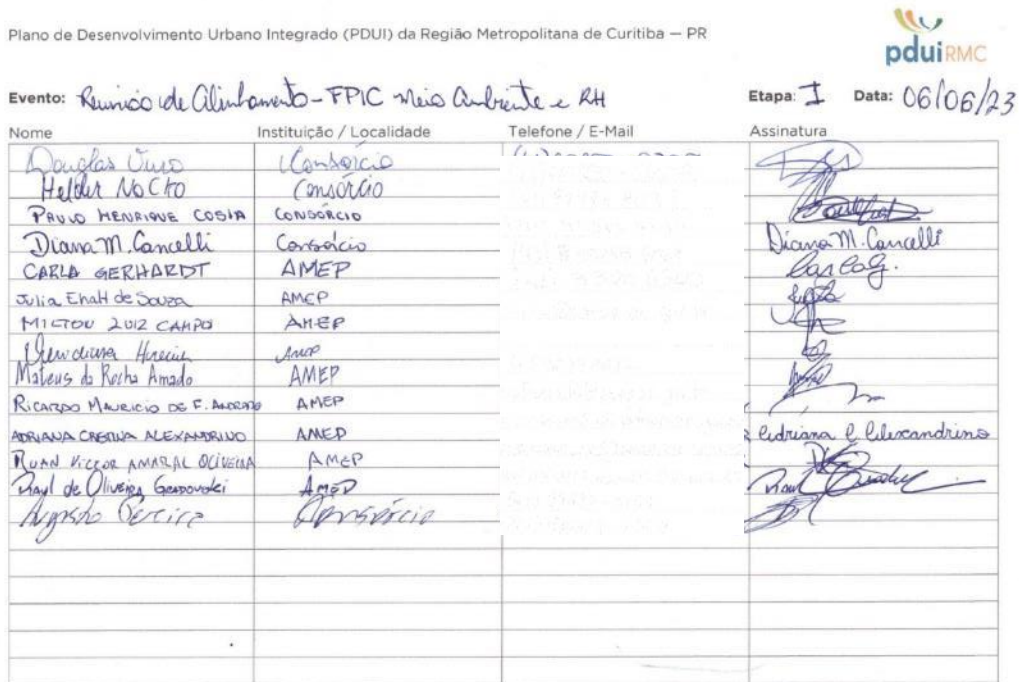 Plano de Desenvolvimento Urbano Integrado (PDUI) da Região Metropolitana de Curitiba — PR
pduiRMC
Evento: Reunião de Alinhamento - FPIC Meio Ambiente e RH Etapa: I Data: 06/06/23
Nome Instituição / Localidade Telefone / E-Mail Assinatura
Douglas Consórcio
Helder Nocko Consórcio
PAULO HENRIQUE COSTA CONSÓRCIO
Diana M. Cancelli Consórcio Diana M. Cancelli
CARLA GERHARDT AMEP Carla G.
Julia Ehalt de Souza AMEP
MILTON LUIZ CAMPO AMEP
AMEP
Mateus da Rocha Amado AMEP
RICARDO MAURICIO DE F. ANDRADE AMEP
ADRIANA CRISTINA ALEXANDRINO AMEP Adriana C Alexandrino
RUAN VICTOR AMARAL OLIVEIRA AMEP
Raul de Oliveira AMEP Raul
Augusto Pereira Consórcio